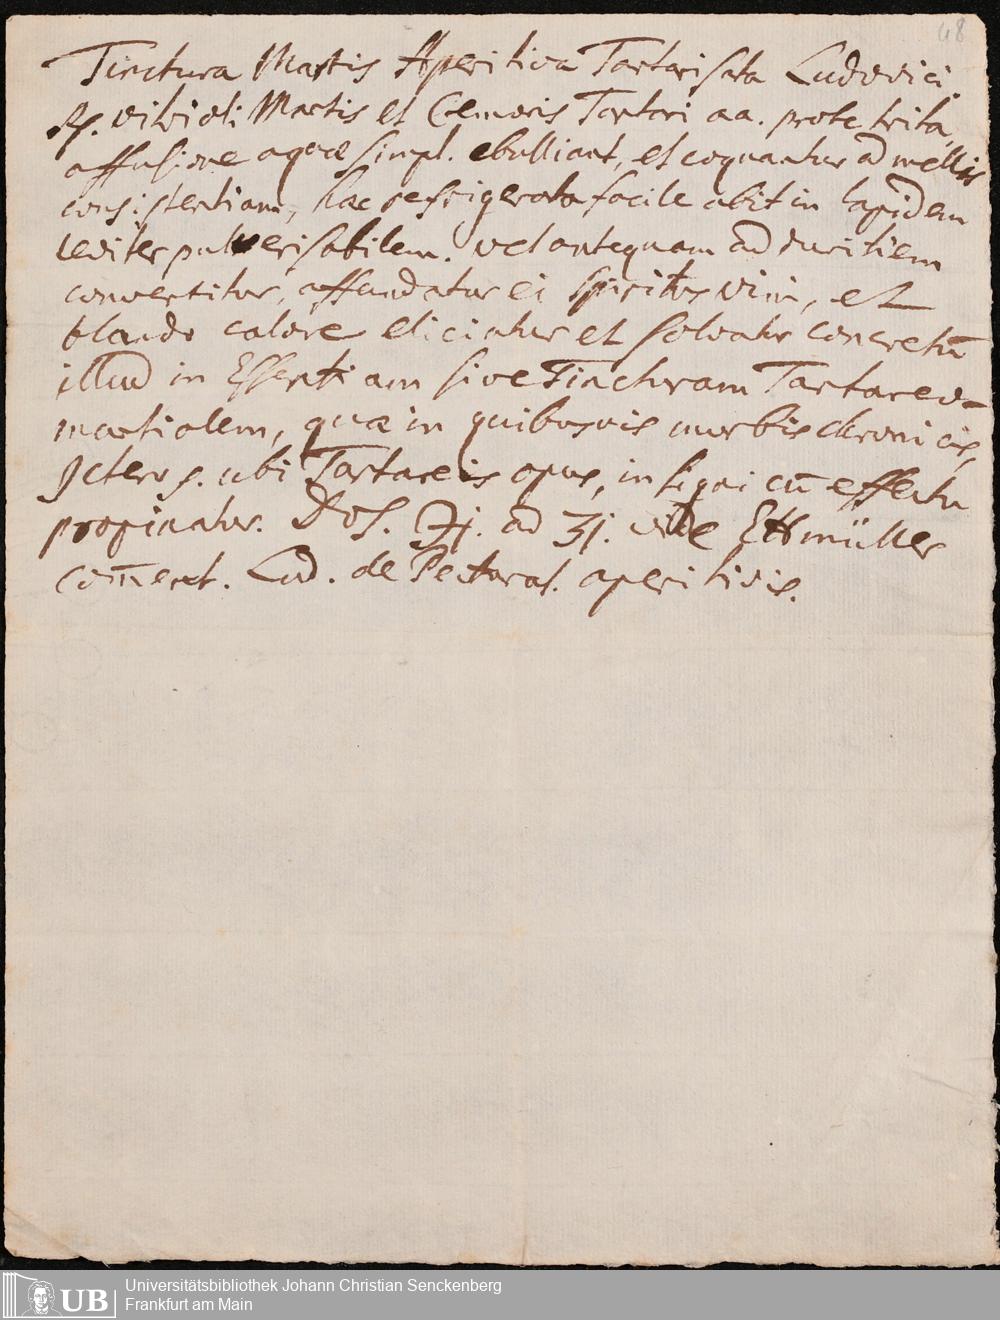 48
Tinctura Martis Aperitiva Tartarisata Ludovici.
℞. vitrioli Martis et Cremoris Tartari aa. probe trita,
affusione aquæ simpl. ebulliant, et coquantur ad mellis
consistentiam, hæc refrigerata facile abit in lapidem
leviter pulverisabilem. vel antequam ad duritiem
convertitur, affundatur ei spiritus vini, et
blando calore eliciatur et solvatur concretū
illud in Essentiam sive Tincturam Tartareo-
martialem, quæ in quibusvis morbis chronicis,
Ictero s. ubi Tartareis opus, insigni cū effectu
propinatur. Dos. ℈j. ad ʒj. vide Ettmüller
com̄ent. Lud. de Pectoral. aperitivis.
UB
Universitätsbibliothek Johann Christian Senckenberg
Frankfurt am Main